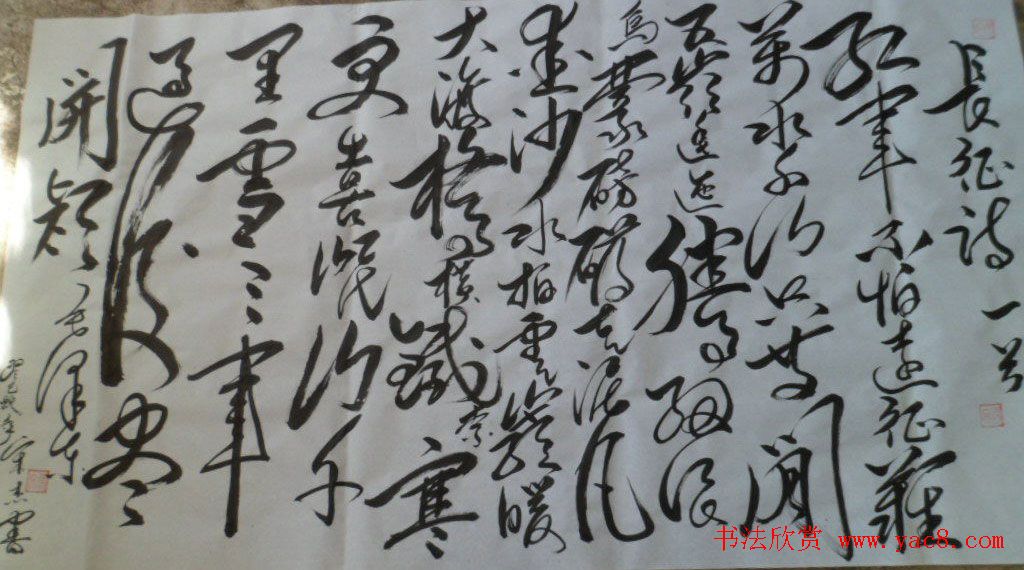 长征诗一首
红军不怕远征难
万水千山只等闲
五岭逶迤腾细浪
乌蒙磅礴走泥丸
金沙水拍云崖暖
大渡桥横铁索寒
更喜岷山千
里雪三军
过后尽
开颜 毛泽东
书
书法欣赏 www.yac8.com